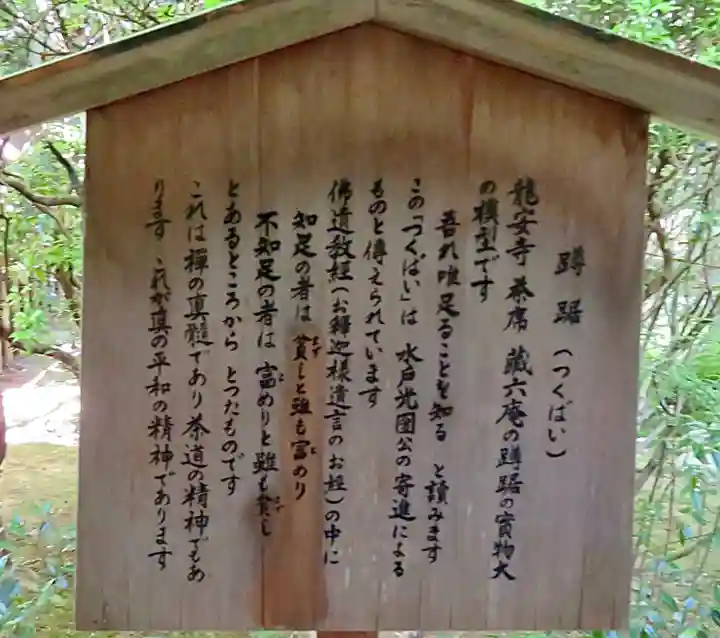 蹲踞(つくばい)
龍安寺 茶席 蔵六庵の蹲踞の實物大
の模型です
吾れ唯足ることを知る と讀みます
この「つくばい」は 水戸光圀公の寄進による
ものと傳えられています
佛遺教經(お釋迦様遺言のお經)の中に
知足の者は 貧しと雖も富めり
不知足の者は 富めりと雖も貧し
とあるところから とつたものです
これは禪の真髓であり茶道の精神でもあ
ります これが真の平和の精神であります